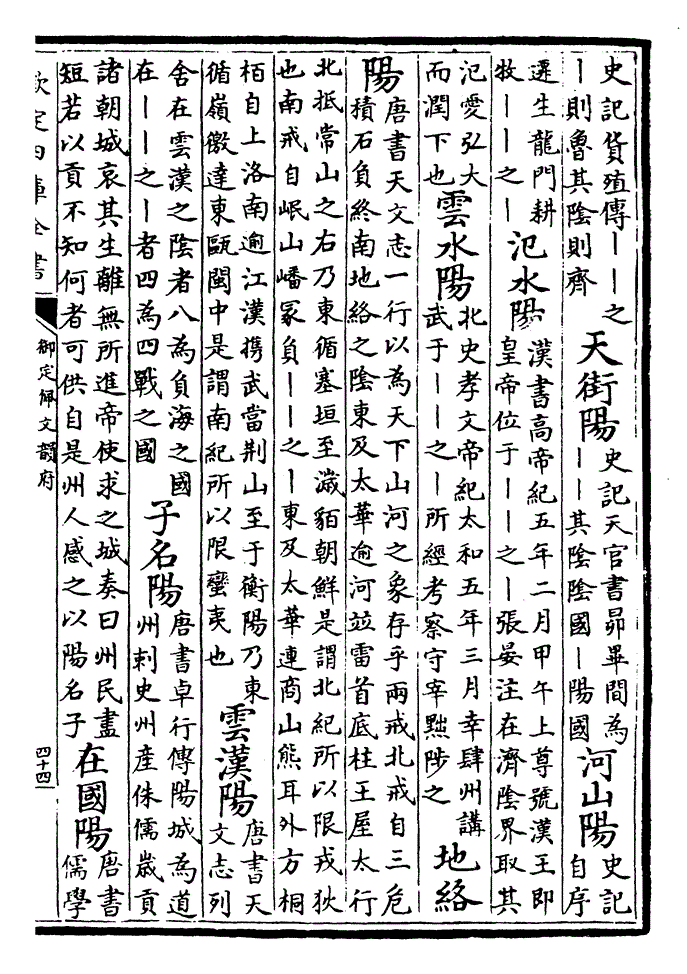 史記貨殖傳丨丨之
丨則魯其陰則齊
天街陽
史記天官書昴畢間為
丨丨其陰陰國丨陽國
河山陽
史記
自序
遷生龍門耕
牧丨丨之丨
氾水陽
漢書高帝紀五年二月甲午上尊號漢王即
皇帝位于丨丨之丨張晏注在濟陰界取其
氾愛弘大
而潤下也
雲水陽
北史孝文帝紀太和五年三月幸肆州講
武于丨丨之丨所經考察守宰黜陟之
地絡
陽
唐書天文志一行以為天下山河之象存乎兩戒北戒自三危
積石負終南地絡之陰東及太華逾河竝雷首底柱王屋太行
北抵常山之右乃東循塞垣至濊貊朝鮮是謂北紀所以限戎狄
也南戒自岷山嶓冢負丨丨之丨東及太華連商山熊耳外方桐
栢自上洛南逾江漢攜武當荆山至于衡陽乃東
循嶺徼達東甌閩中是謂南紀所以限蠻夷也
雲漢陽
唐書天
文志列
舍在雲漢之陰者八為負海之國
在丨丨之丨者四為四戰之國
子名陽
唐書卓行傳陽城為道
州刺史州産侏儒歲貢
諸朝城哀其生離無所進帝使求之城奏曰州民盡
短若以貢不知何者可供自是州人感之以陽名子
在國陽
唐書
儒學
欽定四庫全書
御定佩文韻府
四十四